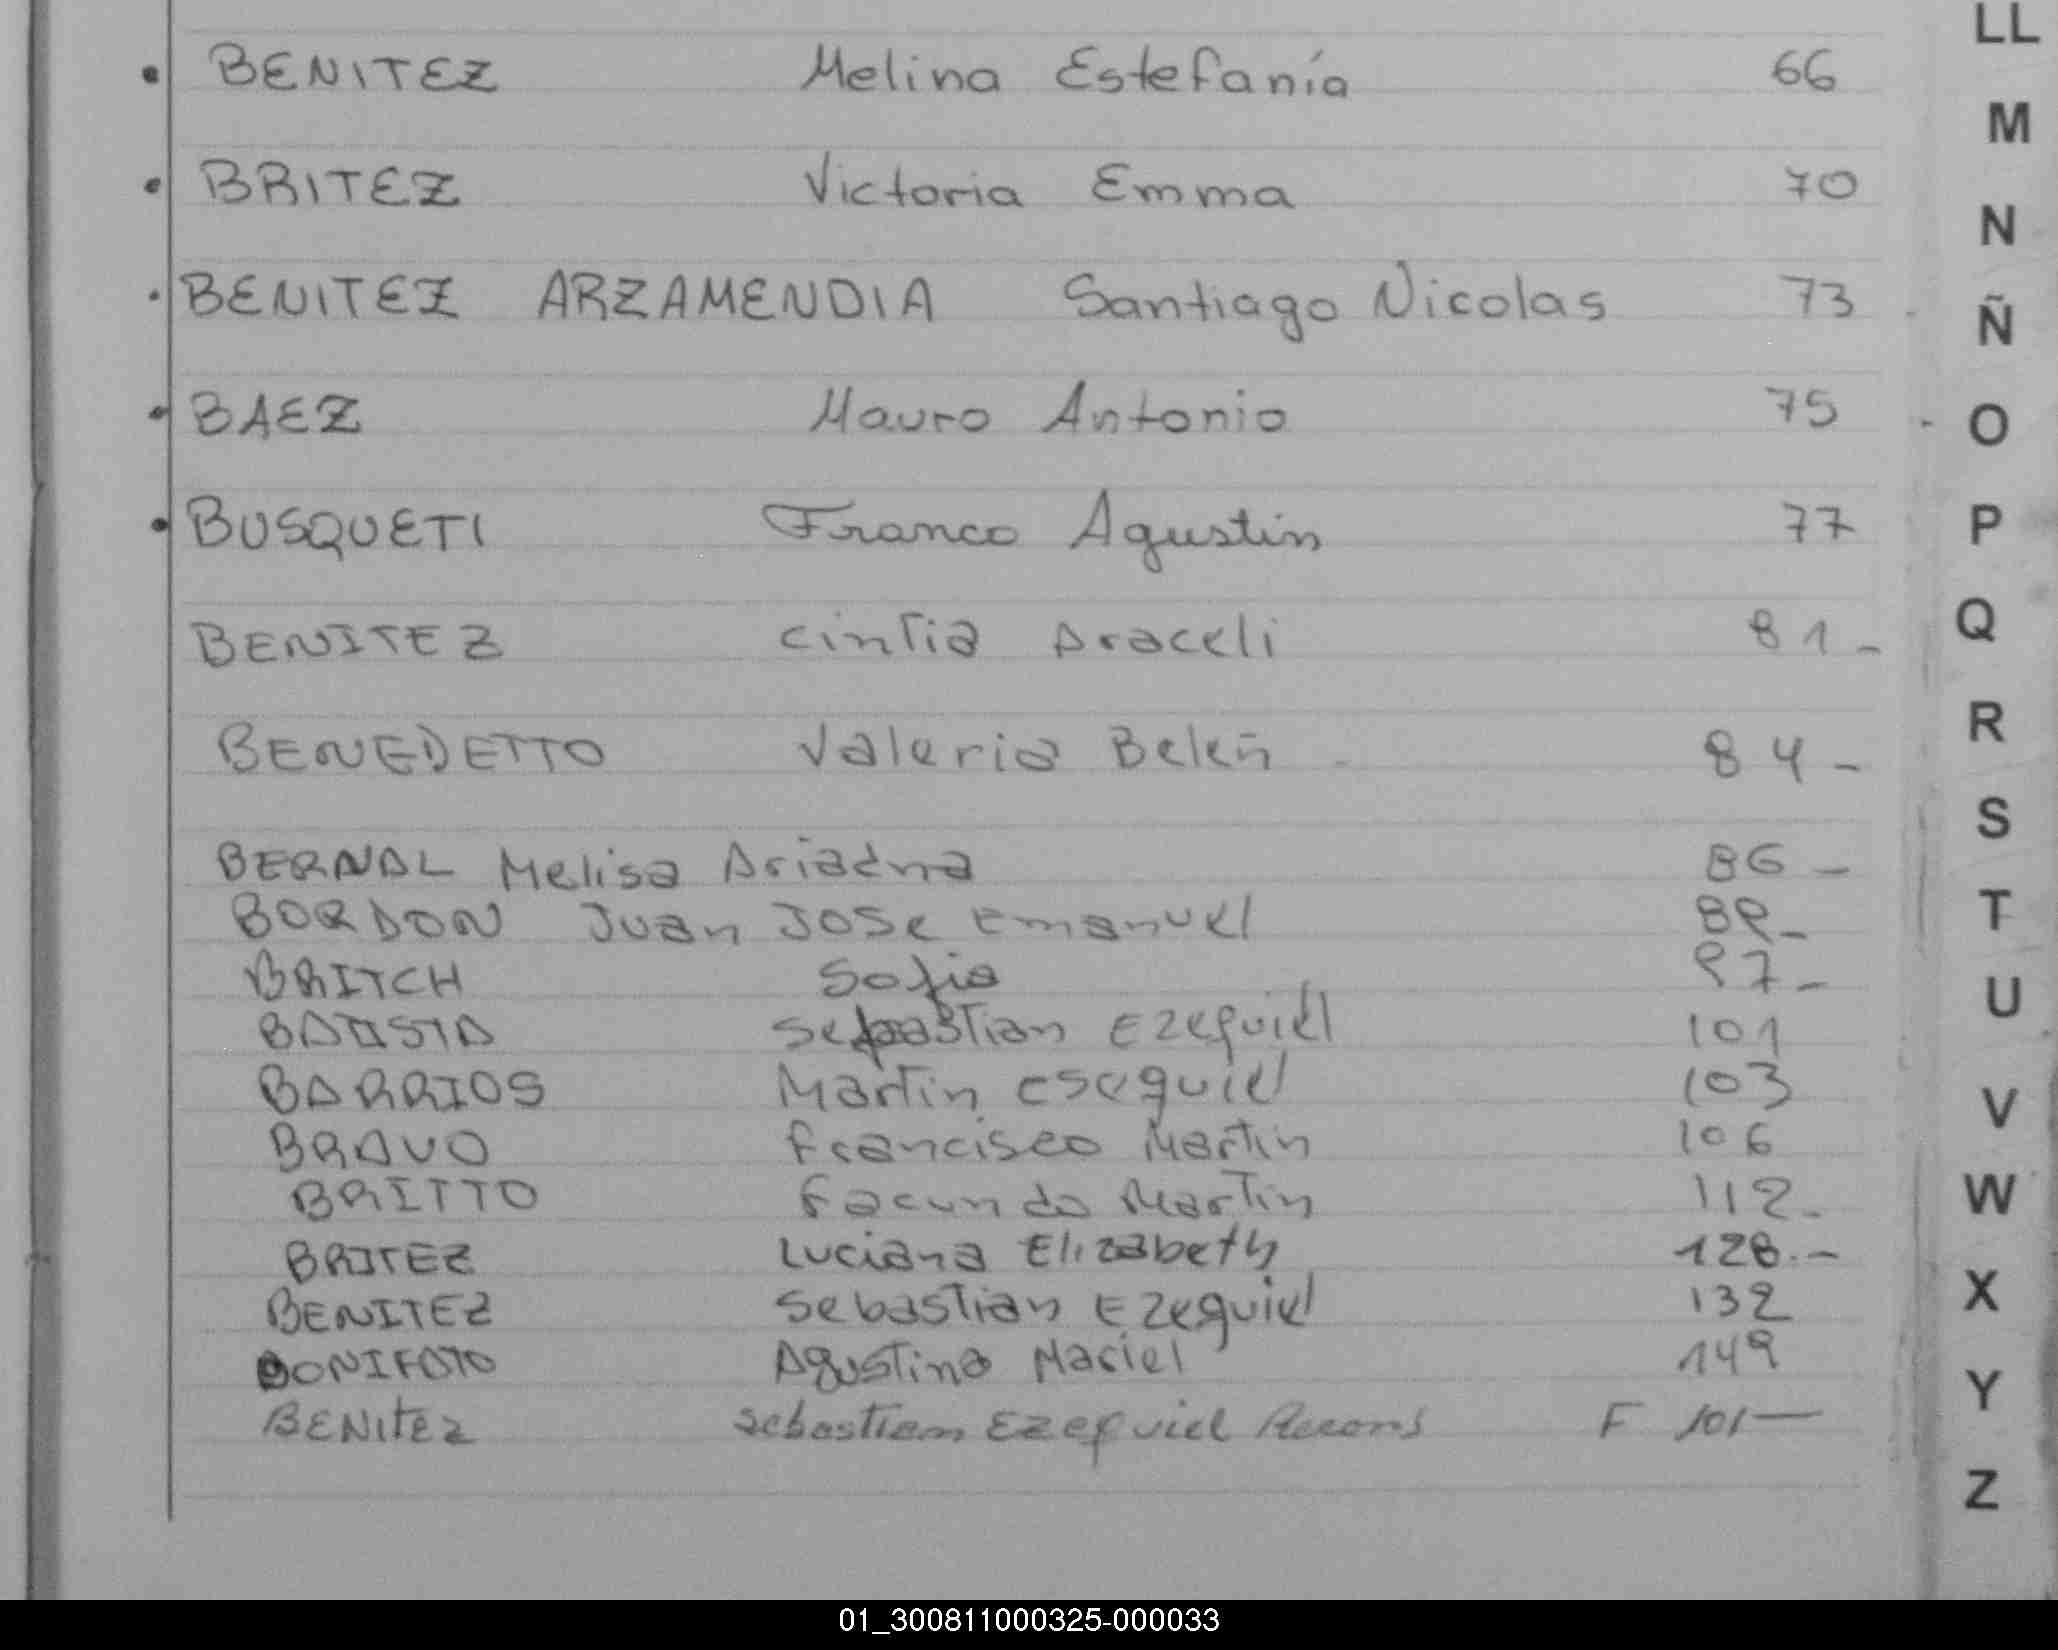 BENITEZ Melina Estefanía 66
BRITEZ Victoria Emma 70
BENITEZ ARZAMENDIA Santiago Nicolas 73
BAEZ Mauro Antonio 75
BUSQUETI Franco Agustin 77
BENITEZ Cintia Araceli 81-
BENEDETTO Valeria Belén 84-
BERNAL Melisa Ariadna 86-
BORDON Juan JOSe Emanuel 89-
BRITCH Sofia 97-
BATISTA Sebastian EZequiel 101
BARRIOS Martin esequiel 103
BRAVO francisco Martin 106
BRITTO facundo Martin 112-
BRITEZ Luciana Elizabeth 128.-
BENITEZ Sebastian EZequiel 132
BONIFATO Agustina Mariel 149
BENItEZ Sebastian EZEquiel F 101-
LL
M
N
Ñ
O
P
Q
R
S
T
U
V
W
X
Y
Z
01_300811000325-000033